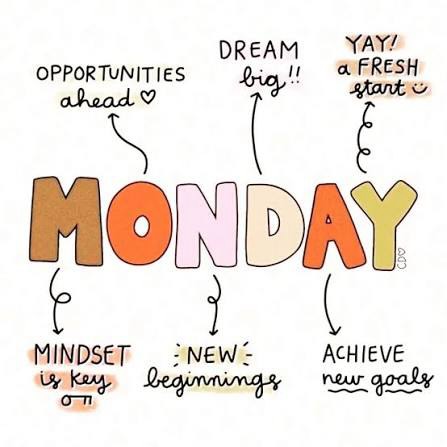 OPPORTUNITIES
ahead
DREAM
big!!
YAY!
a FRESH
start
MONDAY
CDO
MINDSET
is key
NEW
beginnings
ACHIEVE
new goals